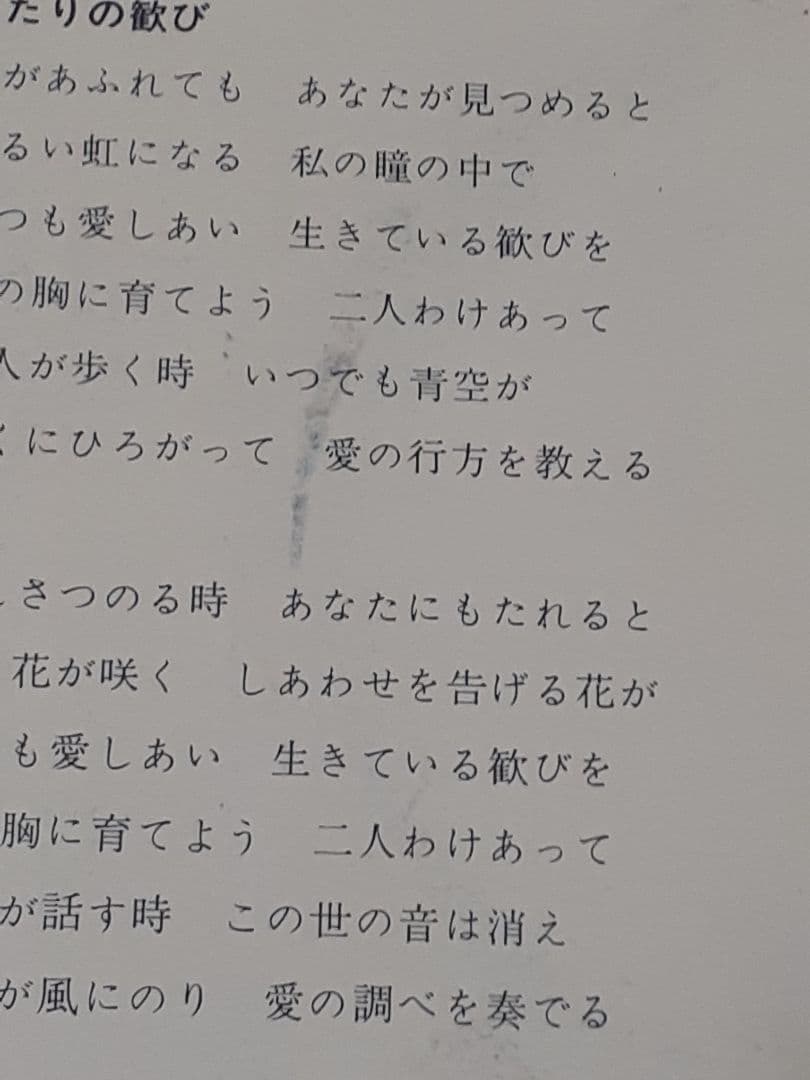 たりの歓び
があふれても　あなたが見つめると
るい虹になる　私の瞳の中で
つも愛しあい　生きている歓びを
の胸に育てよう　二人わけあって
人が歩く時　いつでも青空が
にひろがって　愛の行方を教える
さつのる時　あなたにもたれると
花が咲く　しあわせを告げる花が
も愛しあい　生きている歓びを
胸に育てよう　二人わけあって
が話す時　この世の音は消え
が風にのり　愛の調べを奏でる